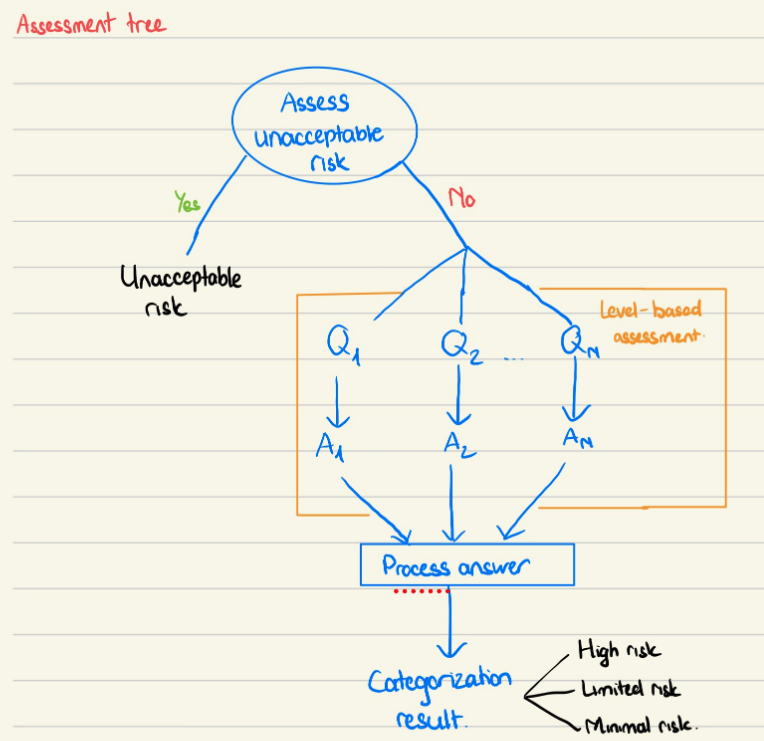 Assessment tree
Assess
unacceptable
risk
Yes
No
Unacceptable
risk
Level-based
assessment.
Q1
Q2
...
QN
A1
A2
AN
Process answer
Categorization
result.
High risk
Limited risk
Minimal risk.